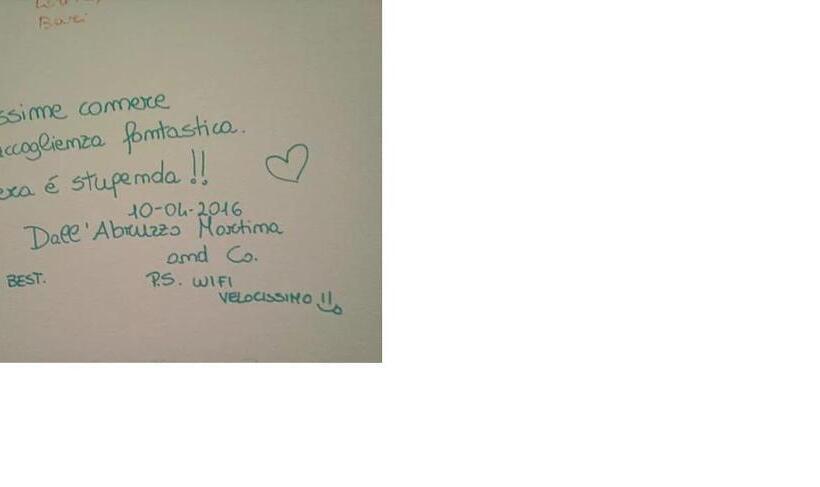 Bari
ssime camere
ccoglienza fantastica.
era é stupenda !!
10-04-2016
Dall'Abruzzo Martina
and Co.
BEST.
P.S. WIFI
VELOCISSIMO !!